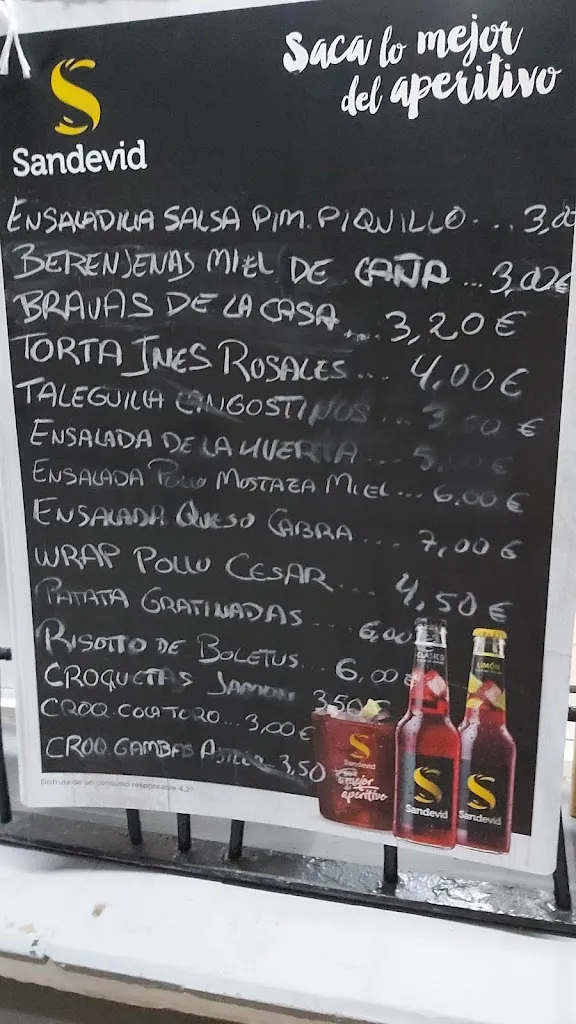 Saca lo mejor
del aperitivo
Sandevid
ENSALADILLA SALSA PIM. PIQUILLO... 3,00
BERENJENAS MIEL DE CAÑA ... 3,00€
BRAVAS DE LA CASA ... 3,20€
TORTA INES ROSALES... 4,00€
TALEGUILLA LANGOSTINOS ... 3 50 €
ENSALADA DE LA HUERTA ... 5,00 €
ENSALADA POLLO MOSTAZA MIEL... 6.00 €
ENSALADA QUESO CABRA ... 7,00 €
WRAP POLLO CESAR.... 4,50 €
PATATA GRATINADAS ... 6,00
RISOTTO DE BOLETUS... 6,00€
CROQUETAS JAMON 3,50€
CROQ. COLA TORO... 3,00€
CROQ. GAMBAS 3,50
CLÁSICO
LIMÓN
Sandevid
Saca lo mejor del aperitivo
Sandevid
Sandevid
Disfruta de un consumo responsable 4,2º